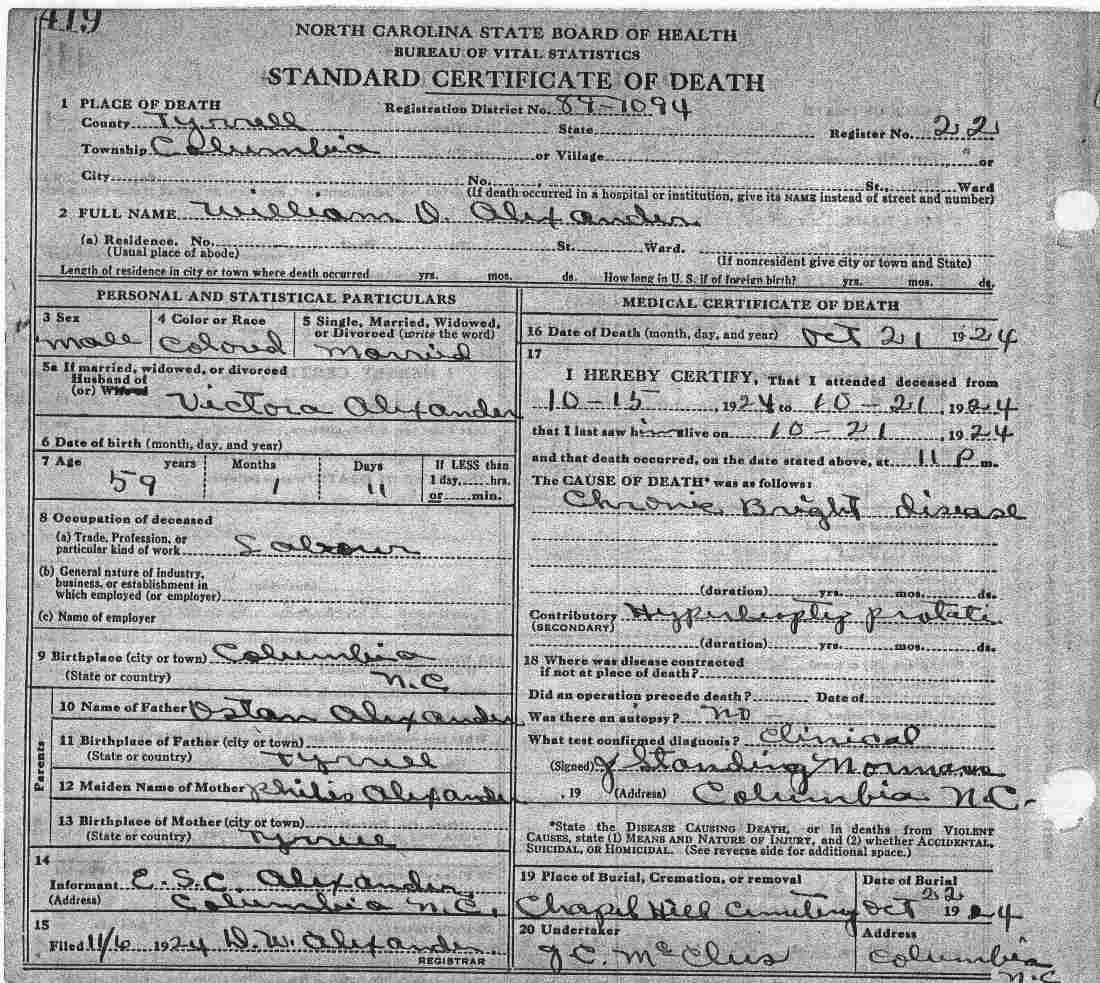 419
NORTH CAROLINA STATE BOARD OF HEALTH
BUREAU OF VITAL STATISTICS
STANDARD CERTIFICATE OF DEATH
1 PLACE OF DEATH Registration District No. 89-1094
County Tyrrell State Register No. 22
Township Columbia or Village or
City No. St., Ward
(If death occurred in a hospital or institution, give its NAME instead of street and number)
2 FULL NAME William D. Alexander
(a) Residence. No. St. Ward.
(Usual place of abode) (If nonresident give city or town and State)
Length of residence in city or town where death occurred yrs. mos. ds. How long in U. S. if of foreign birth? yrs. mos. ds.
PERSONAL AND STATISTICAL PARTICULARS
3 Sex 4 Color or Race 5 Single, Married, Widowed,
or Divorced (write the word)
male Colored Married
5a If married, widowed, or divorced
Husband of
(or) Wife of
Victora Alexander
6 Date of birth (month, day, and year)
7 Age years Months Days If LESS than
1 day, hrs.
or min.
59 1 11
8 Occupation of deceased
(a) Trade, Profession, or
particular kind of work Labour
(b) General nature of industry,
business, or establishment in
which employed (or employer)
(c) Name of employer
9 Birthplace (city or town) Columbia
(State or country) N.C
Parents
10 Name of Father Ostan Alexander
11 Birthplace of Father (city or town)
(State or country) Tyrrell
12 Maiden Name of Mother Philis Alexander
13 Birthplace of Mother (city or town)
(State or country) Tyrrell
14
Informant E.S.C. Alexander
(Address) Columbia N.C.
15
Filed 11/6 1924 D.W. Alexander
REGISTRAR
MEDICAL CERTIFICATE OF DEATH
16 Date of Death (month, day, and year) Oct 21 1924
17
I HEREBY CERTIFY, That I attended deceased from
10-15, 1924 to 10-21, 1924
that I last saw him alive on 10-21, 1924
and that death occurred, on the date stated above, at 11 P m.
The CAUSE OF DEATH* was as follows:
Chronic Bright disease
(duration) yrs. mos. ds.
Contributory
(SECONDARY)
(duration) yrs. mos. ds.
18 Where was disease contracted
if not at place of death?
Did an operation precede death? Date of
Was there an autopsy? no
What test confirmed diagnosis? Clinical
(Signed) J Standing Norman
, 19 (Address) Columbia N.C.
*State the DISEASE CAUSING DEATH, or in deaths from VIOLENT
CAUSES, state (1) MEANS AND NATURE OF INJURY, and (2) whether ACCIDENTAL,
SUICIDAL, OR HOMICIDAL. (See reverse side for additional space.)
19 Place of Burial, Cremation, or removal Date of Burial
Chapel Hill Cemetery Oct 22 1924
20 Undertaker Address
J C. McClus Columbia
N.C